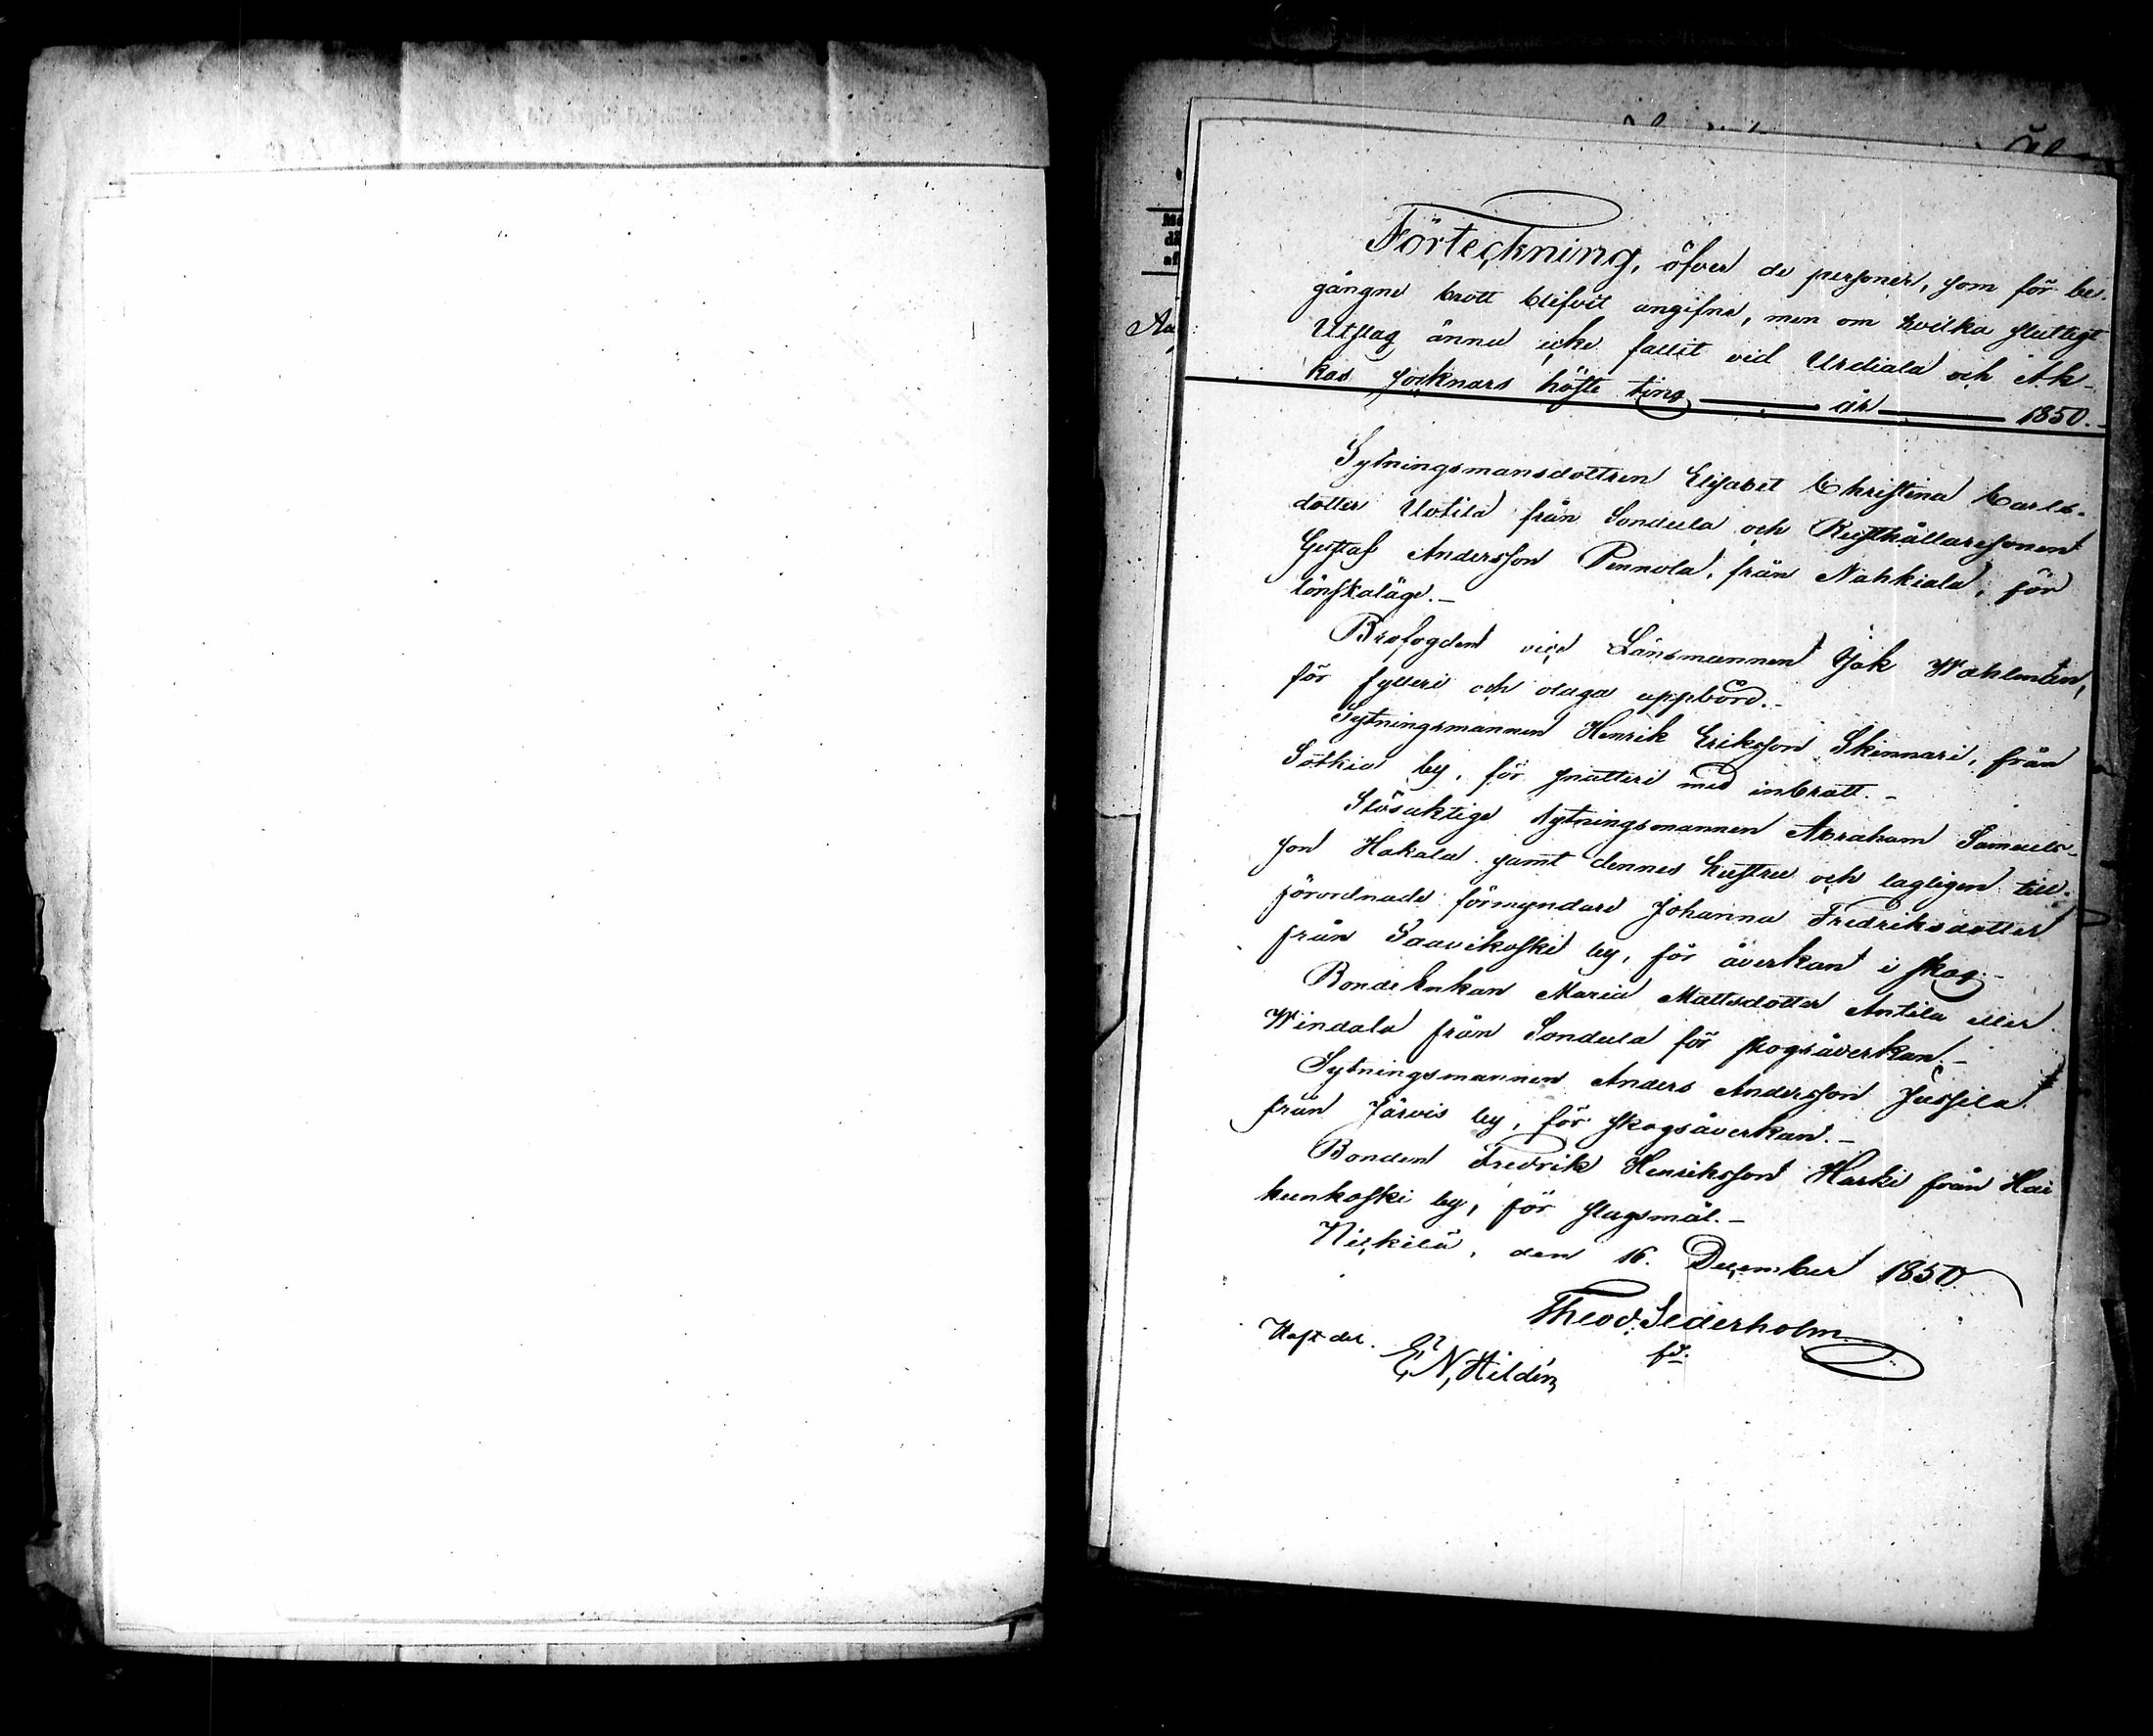 Förteckning, öfver de personer, som för be-
gångne brott blifvit angifne, men om hvilka slutligt
Utslag ännu icke fallit vid Urdiala och Ak-
kas socknars höste ting år 1850.-
Sytningsmansdottren Elisabet Christina Carls-
dotter Uotila från Sondula och Rusthållaresonen
Gustaf Andersson Pennola, från Nahkiala, för
lönskaläge.-
Brofogden vice Länsmannen Jak Wahlman,
för fylleri och olaga uppbörd.-
Sytningsmannen Henrik Eriksson Skinnari, från
Sotkia by, för snatteri med inbrott.-
Slösaktige sytningsmannen Abraham Samuels-
son Hakala samt dennes hustru och lagligen till-
förordnade förmyndare Johanna Fredriksdotter
från Saavikoski by, för åverkan i skog.-
Bonde Enkan Maria Mattsdotter Antila eller
Windala från Sondula för skogsåverkan.-
Sytningsmannen Anders Andersson Jussila
från Järvis by, för skogsåverkan.-
Bonden Fredrik Henriksson Harki från Hai
hunkoski by, för slagsmål.-
Niskilä, den 16. December 1850.
Theod. Sederholm
fd.
E, N, Hildén
Aa